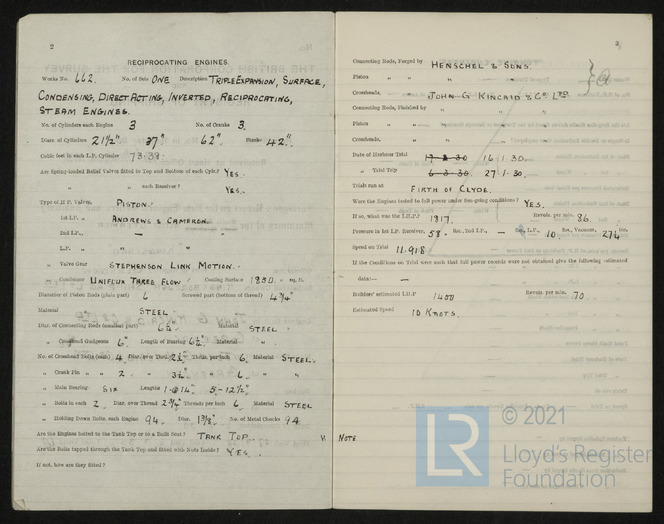 2
RECIPROCATING ENGINES.
Works No. 662. No. of Sets ONE Description TRIPLE EXPANSION, SURFACE,
CONDENSING, DIRECT ACTING, INVERTED, RECIPROCATING,
STEAM ENGINES.
No. of Cylinders each Engine 3 No. of Cranks 3.
Diars. of Cylinders 21½" 37" 62" Stroke 42"
Cubic feet in each L.P. Cylinder 73.38.
Are Spring-loaded Relief Valves fitted to Top and Bottom of each Cylr.? YES.
" " each Receiver? YES.
Type of H.P. Valves, PISTON.
1st I.P. " ANDREWS & CAMERON.
2nd I.P. " —
L.P. " "
" Valve Gear STEPHENSON LINK MOTION.
" Condenser UNIFLUX THREE FLOW Cooling Surface 1850 sq. ft.
Diameter of Piston Rods (plain part) 6 Screwed part (bottom of thread) 4¾"
Material STEEL
Diar. of Connecting Rods (smallest part) 6¼" Material STEEL
" Crosshead Gudgeons 6" Length of Bearing 6½" Material "
No. of Crosshead Bolts (each) 4 Diar. over Thrd. 2½" Thrds. per inch 6 Material STEEL.
" Crank Pin " " 2 " 3¼" " 6 "
" Main Bearing SIX Lengths 1-@14" 5-12½"
" Bolts in each 2 Diar. over Thread 2¾" Threads per inch 6 Material STEEL
" Holding Down Bolts, each Engine 94 Diar. 1⅜" No. of Metal Chocks 94
Are the Engines bolted to the Tank Top or to a Built Seat? TANK TOP.
Are the Bolts tapped through the Tank Top and fitted with Nuts Inside? YES.
If not, how are they fitted?
3
Connecting Rods, Forged by HENSCHEL & SONS.
Piston " "
Crossheads, " JOHN G KINCAID & Co. LTD.
Connecting Rods, Finished by "
Piston " "
Crossheads, " "
Date of Harbour Trial 16.1.30.
" Trial Trip 6-3-30. 27.1.30.
Trials run at FIRTH OF CLYDE.
Were the Engines tested to full power under Sea-going conditions? YES.
If so, what was the I.H.P.? 1817. Revols. per min. 86.
Pressure in 1st I.P. Receiver, 58. lbs., 2nd I.P., — lbs., L.P., 10 lbs., Vacuum, 27¼ ins.
Speed on Trial 11.918
If the Conditions on Trial were such that full power records were not obtained give the following estimated
data:— —
Builders' estimated I.H.P 1400 Revols. per min. 70
Estimated Speed 10 KNOTS.
NOTE
LR
© 2021
Lloyd's Register
Foundation